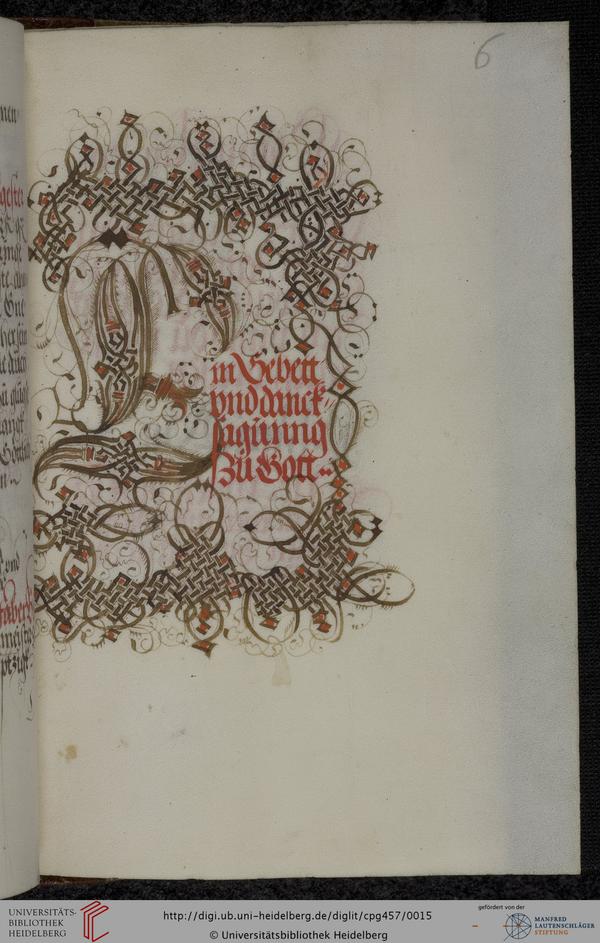 6
Ein Gebett
vnd danck-
sagunng
Zu Gott
UNIVERSITÄTS-
BIBLIOTHEK
HEIDELBERG
http://digi.ub.uni-heidelberg.de/diglit/cpg457/0015
© Universitätsbibliothek Heidelberg
gefördert von der
MANFRED
LAUTENSCHLÄGER
STIFTUNG